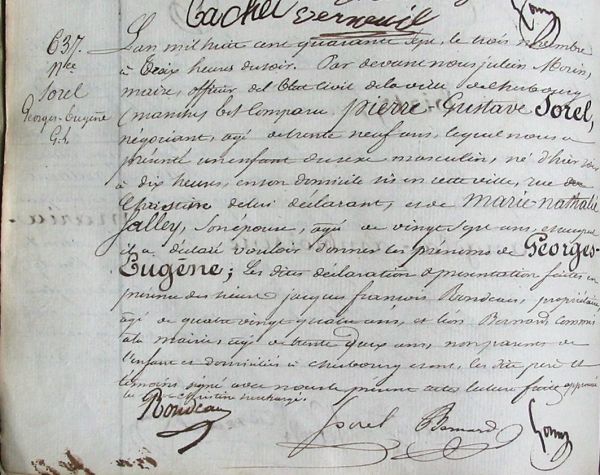 Cachet Verneuil
637.
Nce
Sorel
Georges-Eugène
G. L.
L'an mil huit cent quarante sept, le trois novembre
à trois heures du soir. Par devant nous Julien
maire, officier de l'Etat Civil de la ville de Cherbourg
(Manche) est comparu Pierre-Gustave Sorel,
négociant, âgé de trente neuf ans, lequel nous a
présenté un enfant du sexe masculin, né d'hier
à dix heures, en son domicile sis en cette ville, rue
Christine de lui déclarant, et de Marie-Nathalie
Salley, son épouse, âgée de vingt sept ans, et auquel
il a déclaré vouloir donner les prénoms de Georges-
Eugène; Les dites déclaration et présentation faites en
présence des sieurs Jacques François Rondeau, propriétaire,
âgé de quatre vingt quatre ans, et Léon Bernard commis
à la mairie, âgé de trente deux ans, non parens de
l'enfant et domiciliés à Cherbourg et ont, les dits père et
témoins signé avec nous le présent acte lecture faite, approuvé
Christine surchargé.
Rondeau
Sorel Bernard